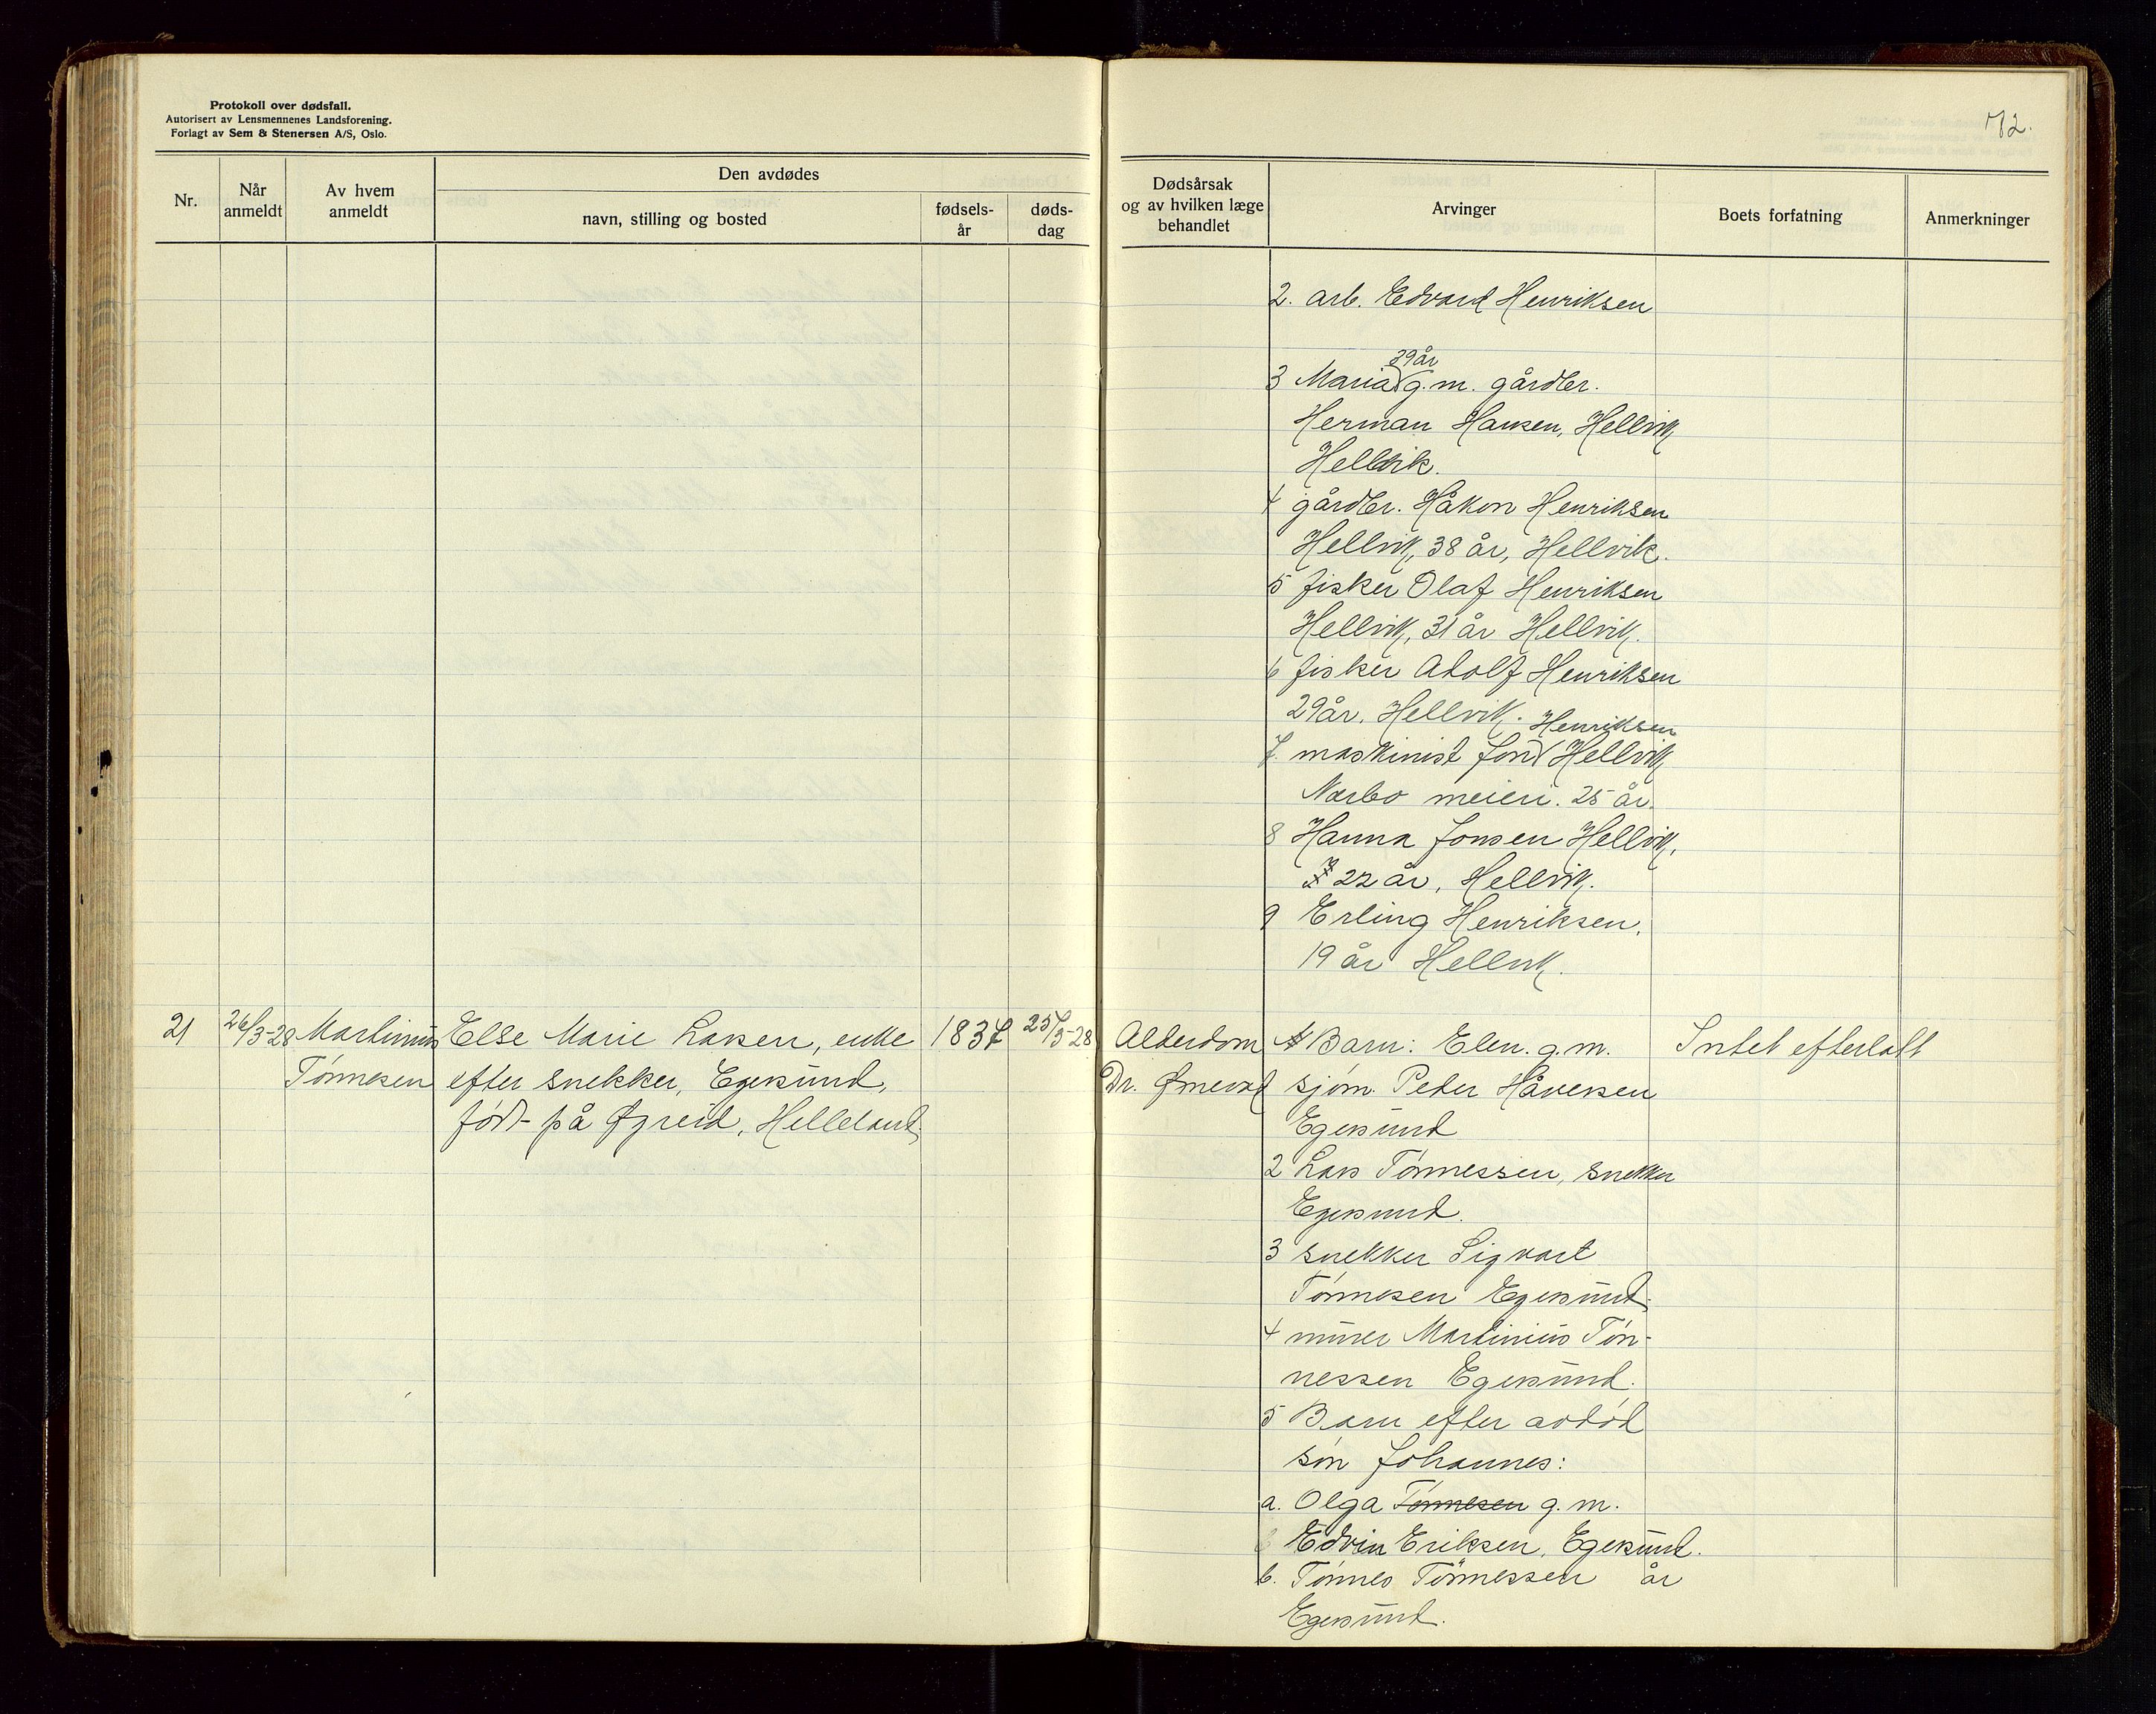 Protokoll over dødsfall.
Autorisert av Lensmennenes Landsforening.
Forlagt av Sem & Stenersen A/S, Oslo.
72.
Nr.
Når anmeldt
Av hvem anmeldt
Den avdødes
navn, stilling og bosted
fødsels-år
døds-dag
Dødsårsak og av hvilken læge behandlet
Arvinger
Boets forfatning
Anmerkninger
2. arb. Edvard Henriksen
39 år
3 Maria g.m. gårdbr.
Herman Hansen, Hellvik
Hellvik.
4 gårdbr. Håkon Henriksen
Hellvik, 38 år, Hellvik.
5 fisker Olaf Henriksen
Hellvik, 31 år Hellvik.
6 fisker Adolf Henriksen
29 år. Hellvik.
Henriksen
7. maskinist Hellvik
Nærbø meieri. 25 år.
8 Hanna Jonsen Hellvik,
22 år, Hellvik.
9 Erling Henriksen,
19 år Hellvik.
21
26/3-28
Martinius
Tönnesen
Else Marie Larsen, enke
efter snekker, Egersund,
född på Øgreid, Helleland.
1837
25/3-28
Alderdom
Dr.
Barn: Elen. g.m.
sjöm. Peder Håversen
Egersund
2 Lars Tönnessen, snekker
Egersund.
3 snekker Sigvart
Tönnesen Egersund.
4 murer Martinius Tön-
nessen Egersund.
5 Barn efter avdöd
sön Johannes:
a. Olga Tönnesen g.m.
Edvin Eriksen, Egersund.
b. Tönnes Tönnessen år
Egersund.
Intet efterlatt